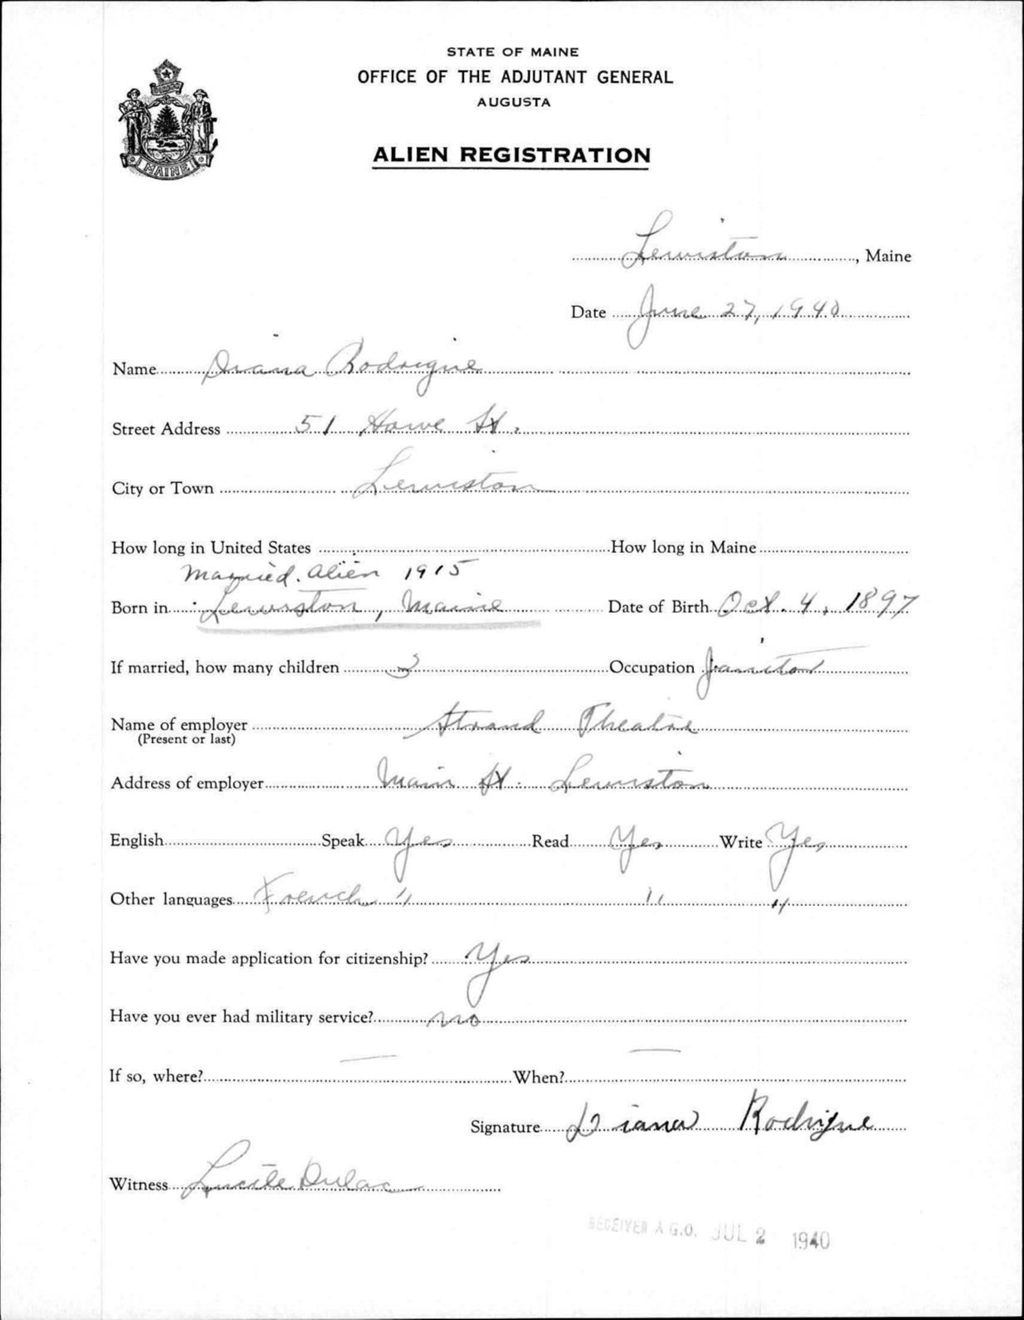 STATE OF MAINE
OFFICE OF THE ADJUTANT GENERAL
AUGUSTA
ALIEN REGISTRATION
MAINE
Lewiston, Maine
Date June 27, 1940
Name Diana Rodrigue
Street Address 51 Howe St.
City or Town Lewiston
How long in United States How long in Maine
Married Alien 1915
Born in Lewiston, Maine Date of Birth Oct. 4, 1897
If married, how many children 3 Occupation Janitor
Name of employer Strand Theatre
(Present or last)
Address of employer Main St. Lewiston
English Speak Yes Read Yes Write Yes
Other languages French " " "
Have you made application for citizenship? Yes
Have you ever had military service? no
If so, where? — When? —
Signature Diana Rodrigue
Witness Lucile Dulac
RECEIVED A.G.O. JUL 2 1940